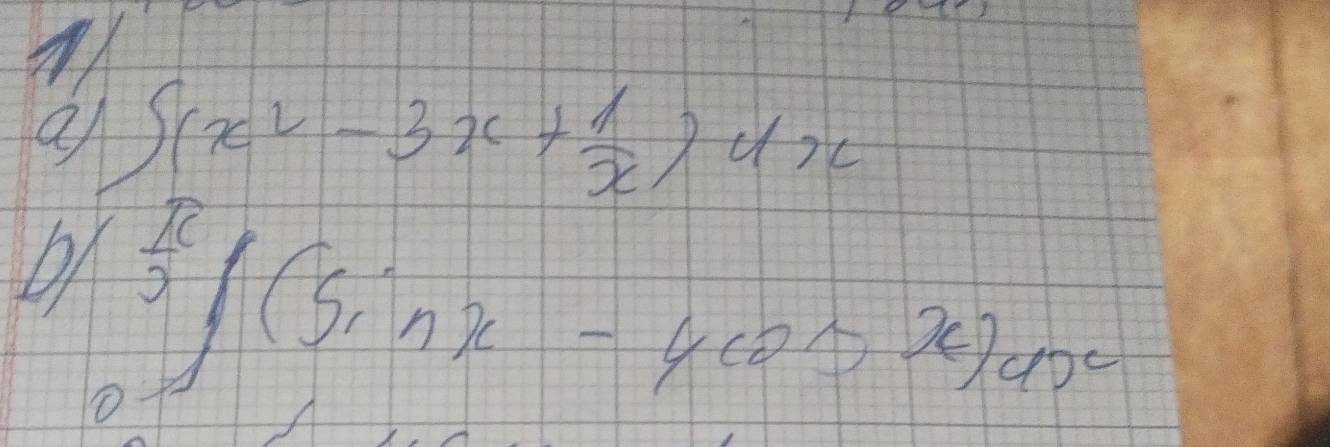 1)
a) ∫(x² - 3x + 1/x) dx
b) π/3 ∫ 0 (Sin x - 4cos x) dx